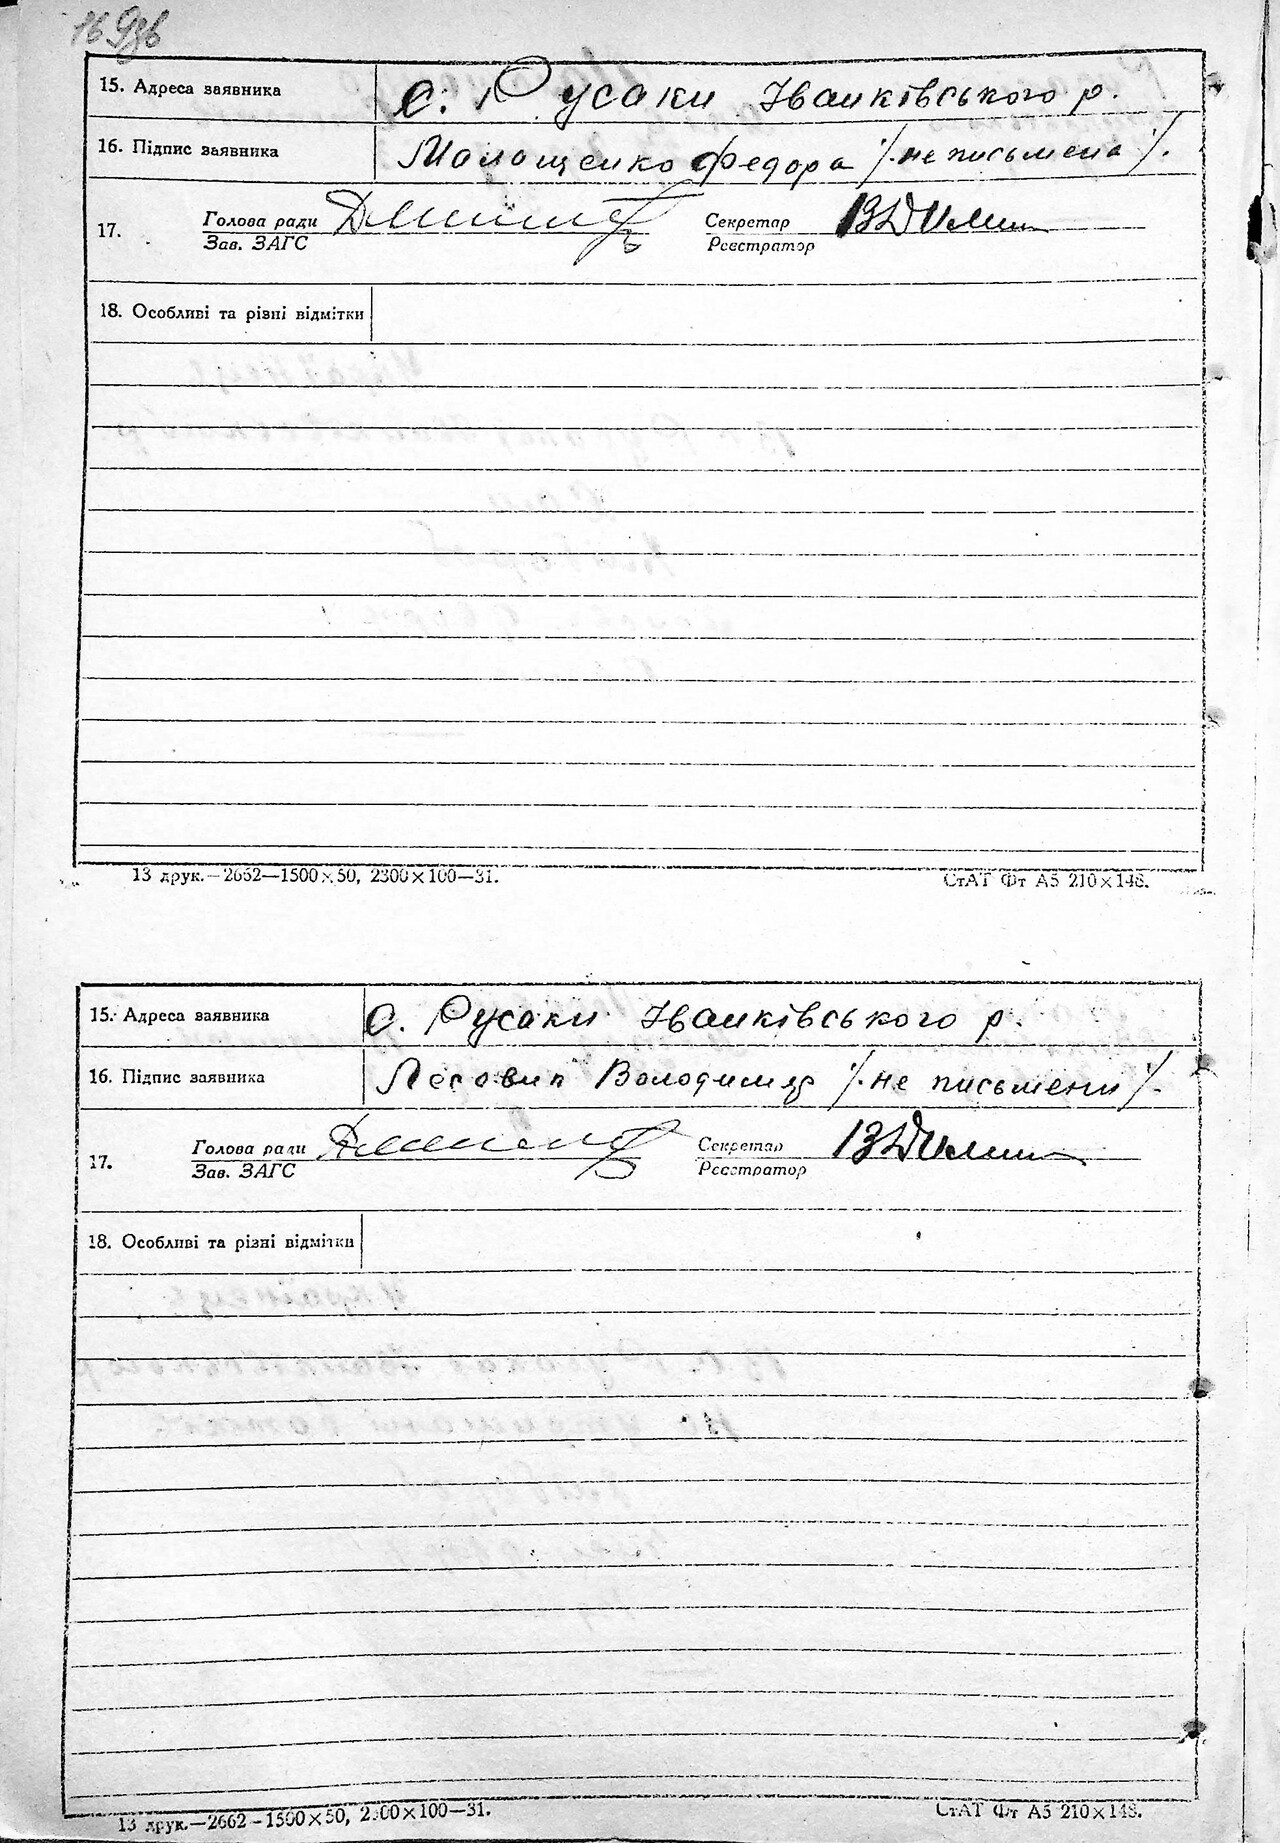 16 зв
15. Адреса заявника с. Русаки Іванківського р.
16. Підпис заявника Малащенко Федора /. не письмена /.
17. Голова ради Секретар
Зав. ЗАГС Реєстратор
18. Особливі та різні відмітки
13 друк.—2662—1500×50, 2300×100—31. СтАТ Фт А5 210×148.
15. Адреса заявника с. Русаки Іванківського р.
16. Підпис заявника Лєсовик Володимир /. не письмени /.
17. Голова ради Секретар
Зав. ЗАГС Реєстратор
18. Особливі та різні відмітки
13 друк.—2662—1500×50, 2300×100—31. СтАТ Фт А5 210×148.